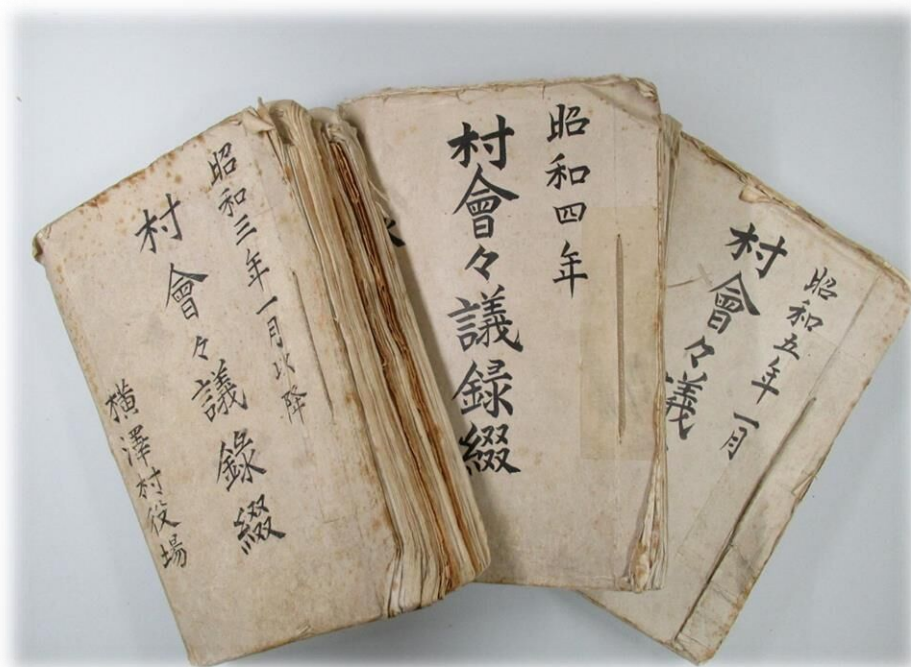 昭和三年一月以降
村會々議錄綴
横澤村役場
昭和四年
村會々議録綴
昭和五年一月
村會々議